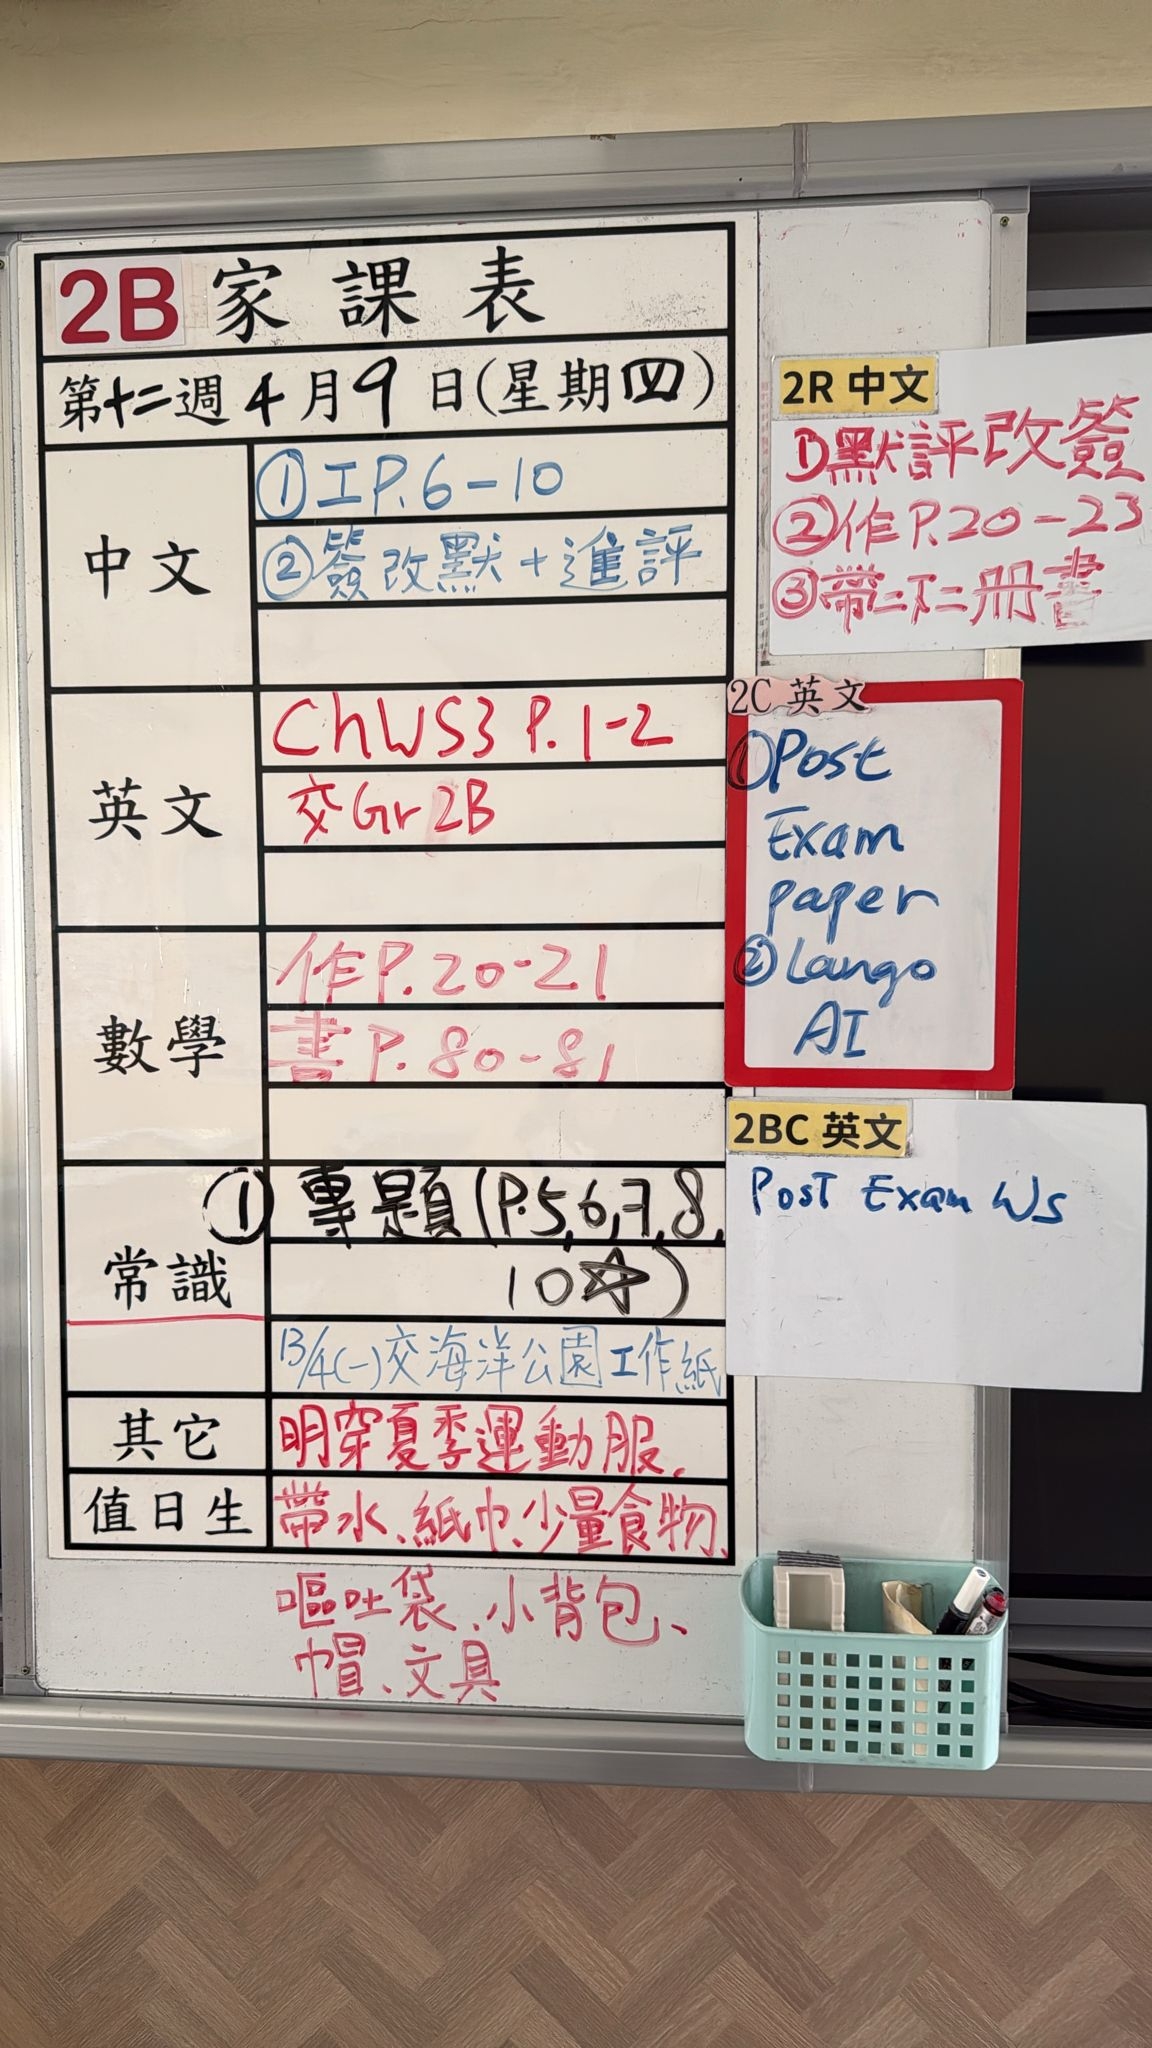 2B 家課表
第十二週 4月9日(星期四)
中文
①工P.6-10
②簽改默+進評
英文
ChWS3 P.1-2
交Gr 2B
數學
作P.20-21
書P.80-81
常識
① 專題(P.5,6,7,8,
10☆)
13/4(一)交海洋公園工作紙
其它
明穿夏季運動服、
值日生
帶水、紙巾、少量食物、
嘔吐袋、小背包、
帽、文具
2R 中文
①默評改簽
②作P.20-23
③帶二下二冊書
2C 英文
①Post
Exam
paper
②Lango
AI
2BC 英文
Post Exam Ws